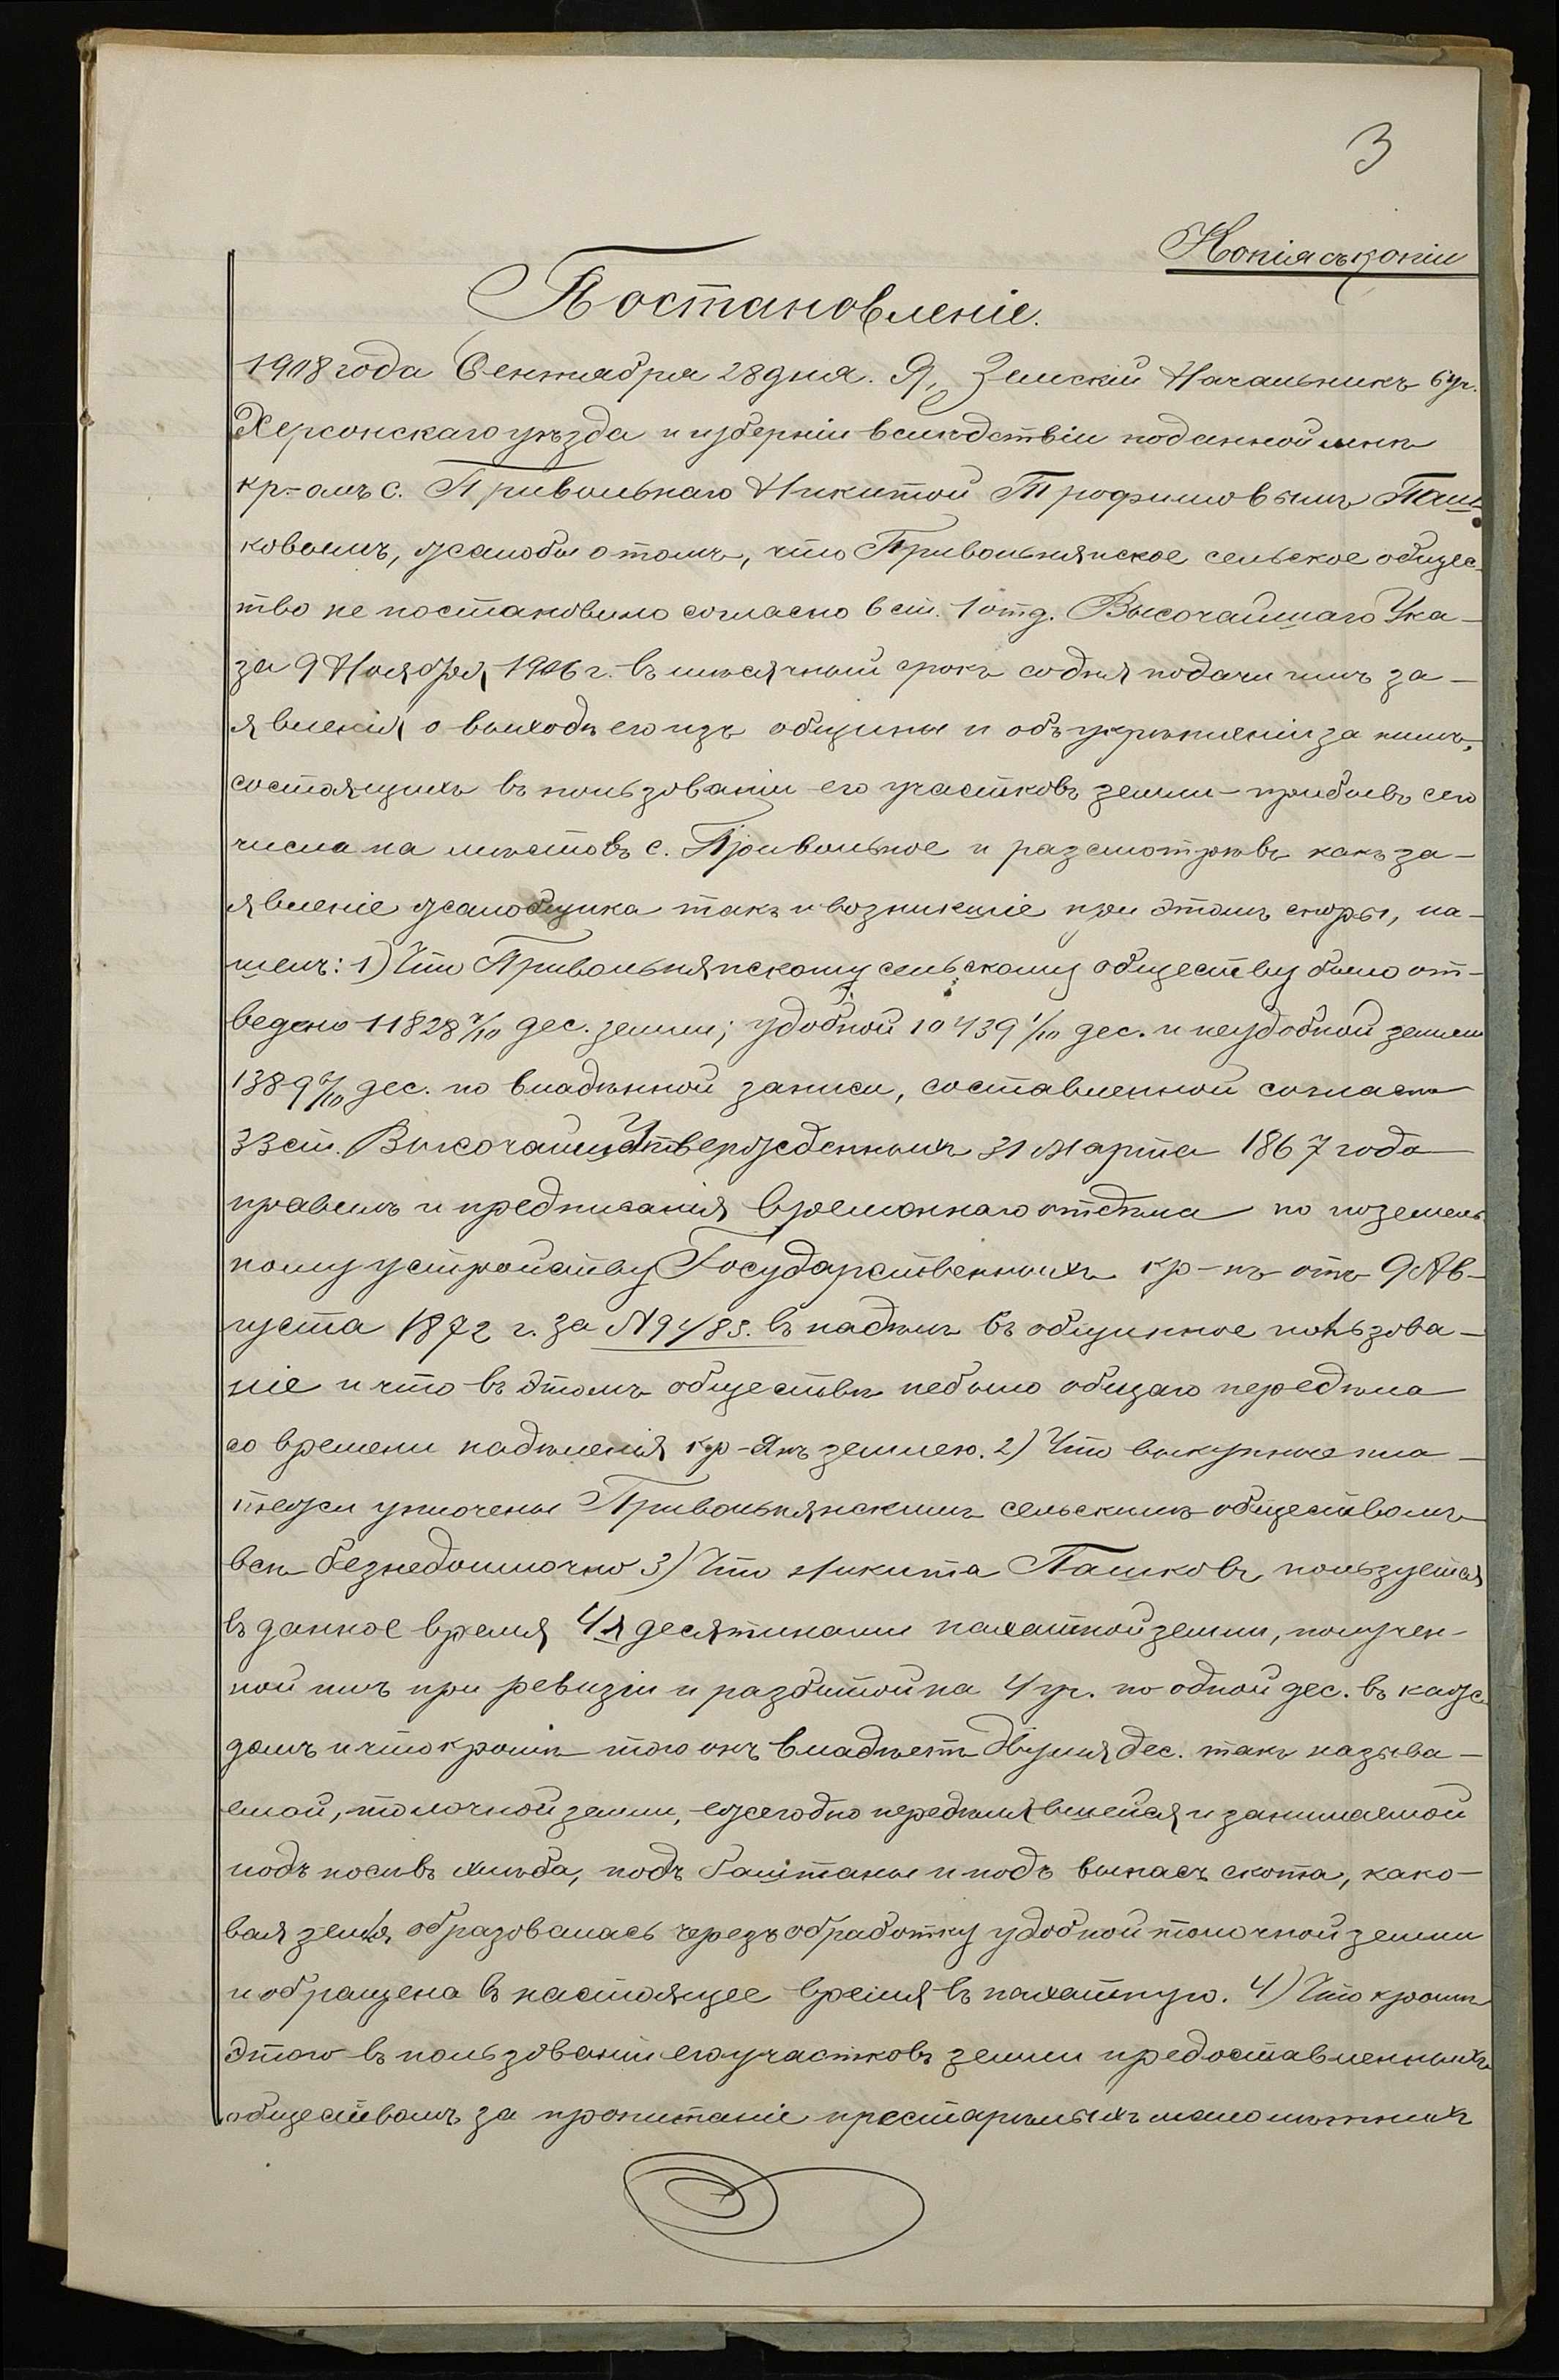 3
Копія съ копіи
Постановленіе.
1908 года Сентября 28 дня. Я, Земскій Начальникъ 6 уч.
Херсонскаго уѣзда и губерніи вслѣдствіи поданной мнѣ
кр-омъ с. Привольнаго Никитой Трофимовымъ Паш-
ковымъ, жалобы о томъ, что Привольнянское сельское общес-
тво не постановило согласно 6 ст. 1 отд. Высочайшаго Ука-
за 9 Ноября 1906 г. въ мѣсячный срокъ со дня подачи имъ за-
явленія о выходѣ его изъ общины и объ укрѣпленіи за нимъ,
состоящихъ въ пользованіи его участковъ земли - прибывъ сего
числа на мѣсто въ с. Привольное и разсмотрѣвъ какъ за-
явленіе жалобщика такъ и возникшіе при этомъ споры, на-
шелъ: 1) Что Привольнянскому сельскому обществу было от-
ведено 11828 7/10 дес. земли; удобной 10439 1/10 дес. и неудобной земли
1389 6/10 дес. по владѣнной записи, составленной согласно
33 ст. Высочайше Утвержденныхъ 31 Марта 1867 года
правилъ и предписанія временнаго отдѣла по поземель
ному устройству Государственныхъ кр-нъ отъ 9 Ав-
густа 1872 г. за № 9485. въ надѣлъ въ общинное пользова-
ніе и что въ этомъ обществѣ небыло общаго передѣла
со времени надѣленія кр-янъ землею. 2) Что выкупные пла-
тежи уплочены Привольнянскимъ сельскимъ обществомъ
всѣ безнедоимочно 3) Что Никита Пашковъ, пользуется
въ данное время 4я десятинами пахатной земли, получен-
ной имъ при ревизіи и разбитой на 4 уч. по одной дес. въ каж-
домъ и что кромѣ того онъ владѣетъ двумя дес. такъ называ-
емой, толочной земли, ежегодно передѣлявшейся и занимаемой
подъ посѣвъ хлѣба, подъ баштаны и подъ выпасъ скота, како-
вая земля образовалась черезъ обработку удобной толочной земли
и обращена въ настоящее время въ пахатную. 4) Что кромѣ
этого въ пользованіи его участковъ земли предоставленныхъ
обществомъ за пропитаніе престарѣлыхъ малолѣтнихъ